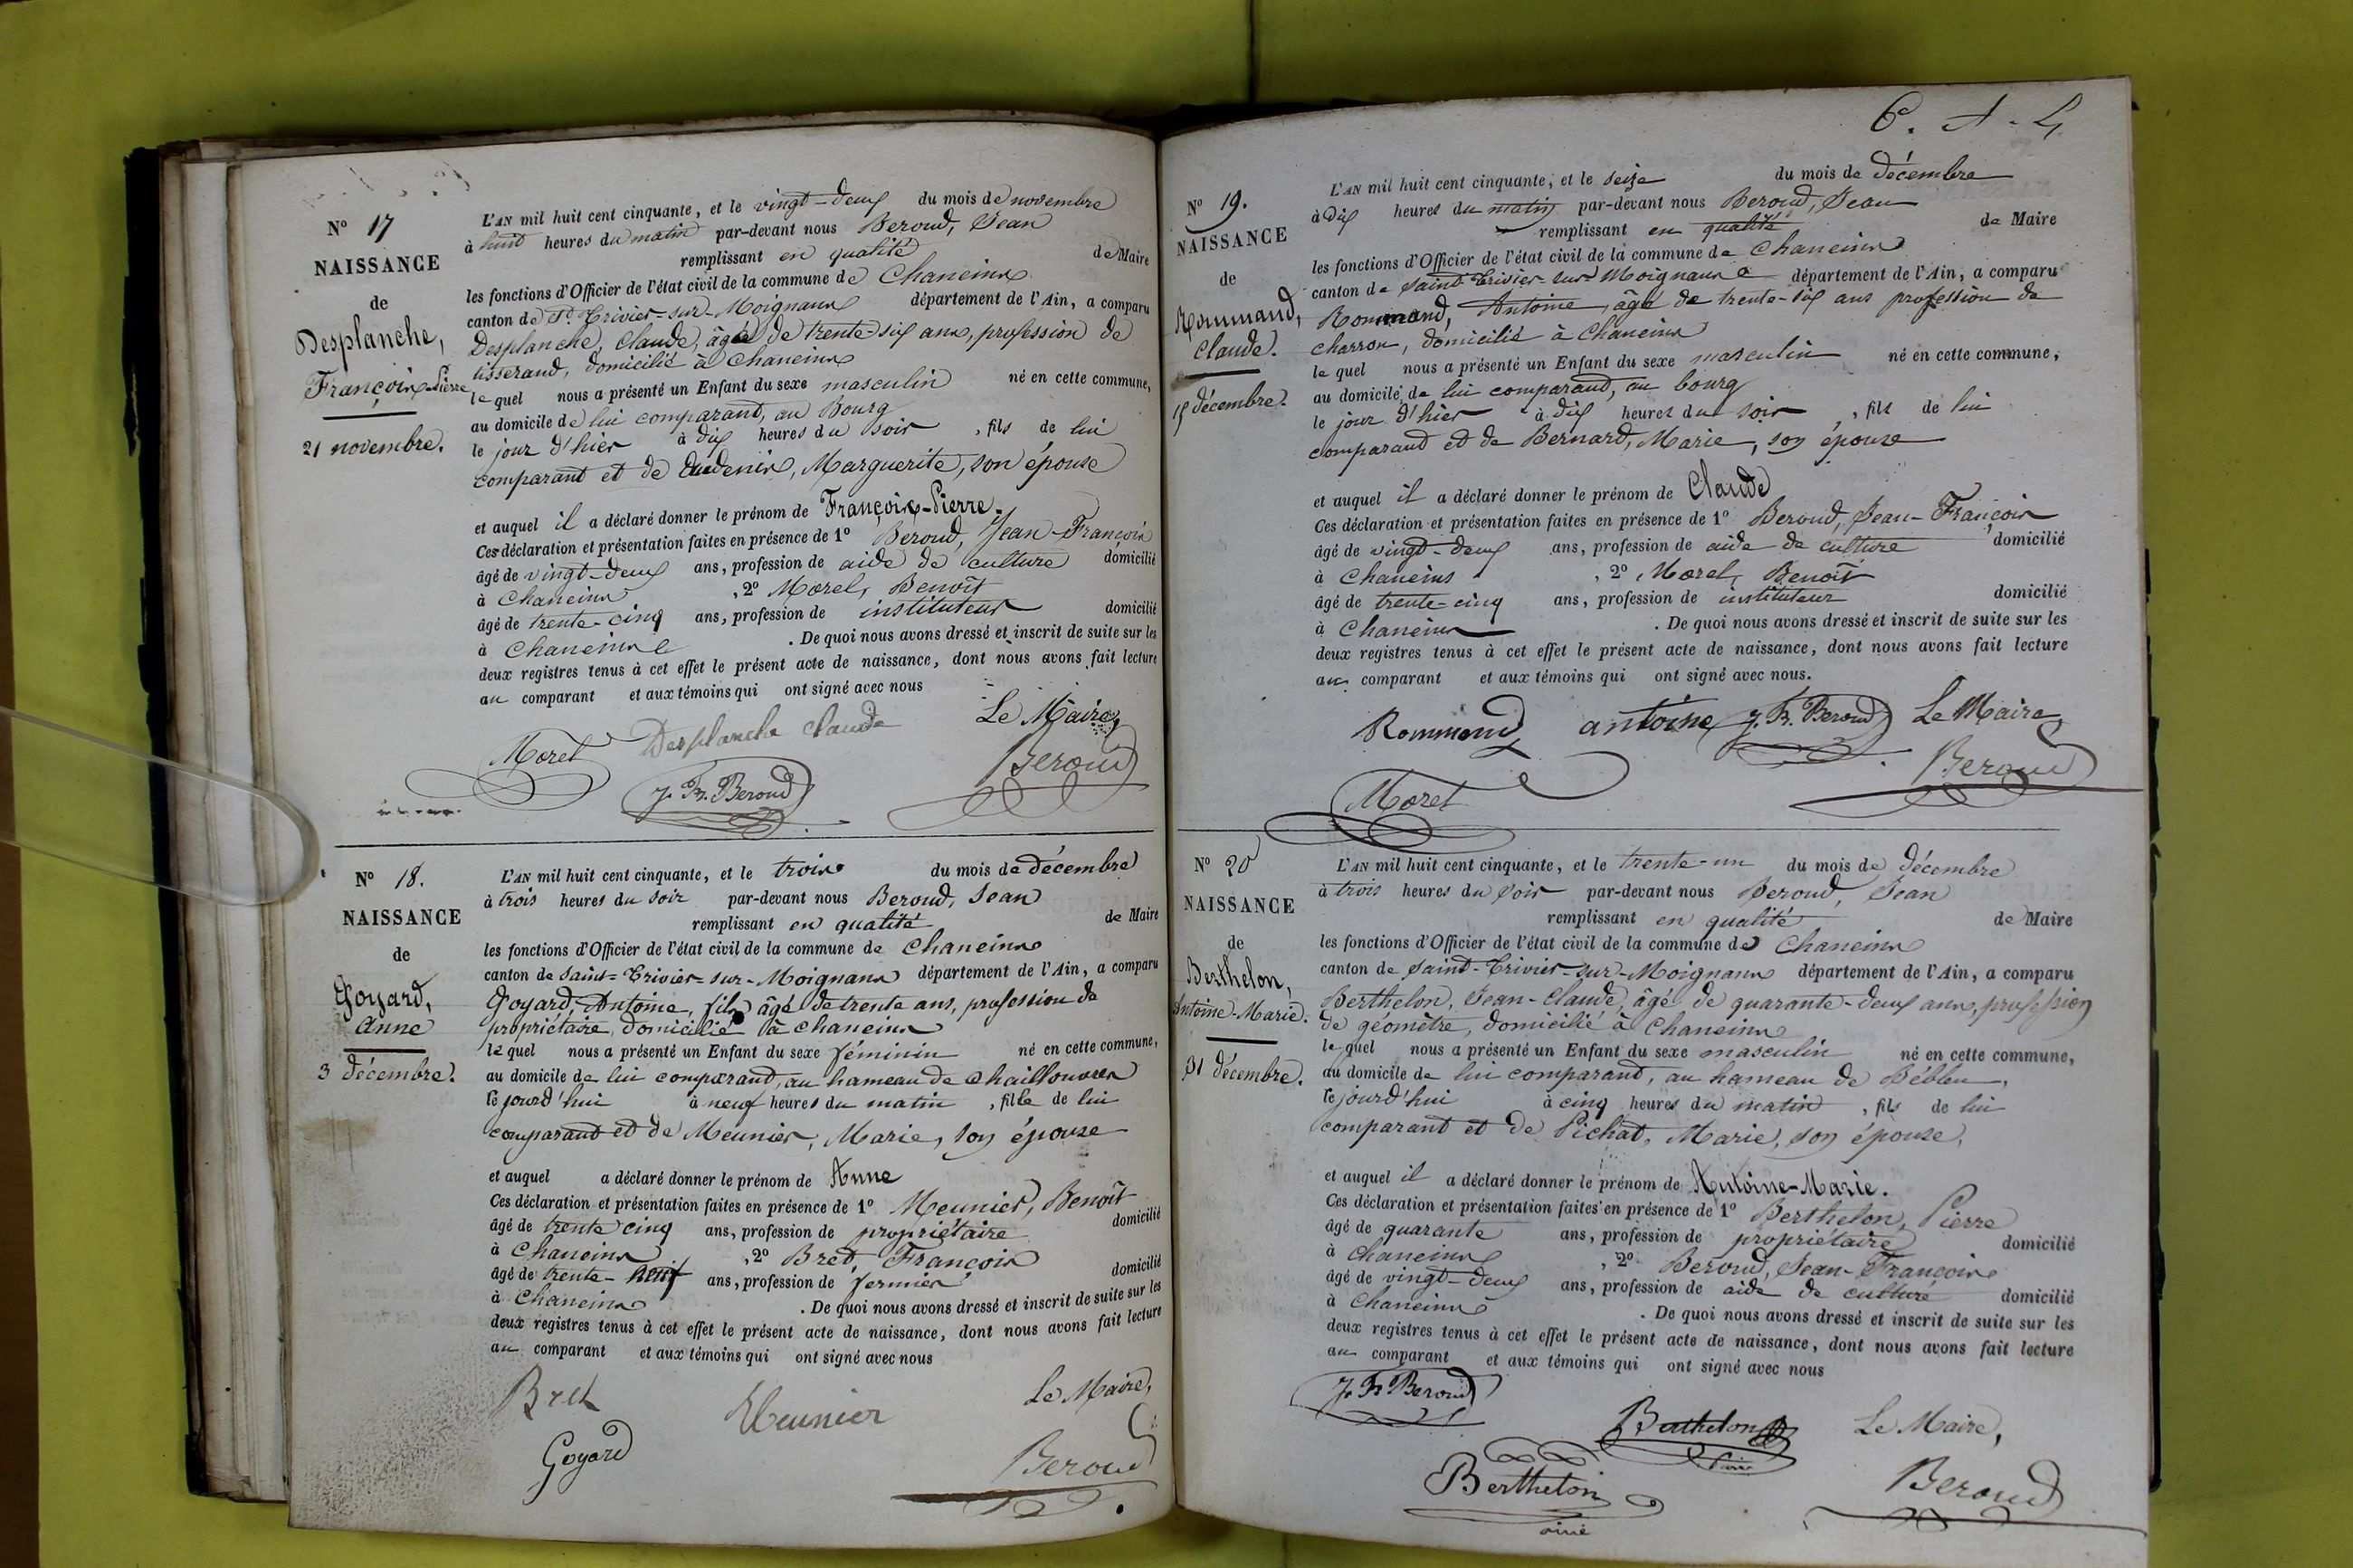 N° 17
NAISSANCE
de
Desplanche,
François-Pierre
21 novembre.
L'AN mil huit cent cinquante, et le vingt-deux du mois de novembre
à huit heures du matin par-devant nous Beroud, Jean
remplissant en qualité de Maire
les fonctions d'Officier de l'état civil de la commune de Chaneins
canton de St. Trivier-sur-Moignans département de l'Ain, a comparu
Desplanche, Claude, âgé de trente-six ans, profession de
tisserand, domicilié à Chaneins
lequel nous a présenté un Enfant du sexe masculin né en cette commune,
au domicile de lui comparant, au Bourg
le jour d'hier à dix heures du soir, fils de lui
comparant et de Marguerite, son épouse
et auquel il a déclaré donner le prénom de François-Pierre.
Ces déclaration et présentation faites en présence de 1° Beroud, Jean-François
âgé de vingt-deux ans, profession de aide de culture domicilié
à Chaneins, 2° Morel, Benoît
âgé de trente-cinq ans, profession de instituteur domicilié
à Chaneins. De quoi nous avons dressé et inscrit de suite sur les
deux registres tenus à cet effet le présent acte de naissance, dont nous avons fait lecture
au comparant et aux témoins qui ont signé avec nous
Le Maire,
Morel Desplanche Claude
J. Fs. Beroud Beroud
N° 18.
NAISSANCE
de
Goyard,
Anne
3 décembre.
L'AN mil huit cent cinquante, et le trois du mois de décembre
à trois heures du soir par-devant nous Beroud, Jean
remplissant en qualité de Maire
les fonctions d'Officier de l'état civil de la commune de Chaneins
canton de Saint-Trivier-sur-Moignans département de l'Ain, a comparu
Goyard, Antoine, fils, âgé de trente ans, profession de
propriétaire, domicilié à Chaneins
lequel nous a présenté un Enfant du sexe féminin né en cette commune,
au domicile de lui comparant, au hameau de Chaillouvres
ce jourd'hui à neuf heures du matin, fille de lui
comparant et de Meunier, Marie, son épouse
et auquel a déclaré donner le prénom de Anne
Ces déclaration et présentation faites en présence de 1° Meunier, Benoît
âgé de trente cinq ans, profession de propriétaire domicilié
à Chaneins, 2° Bret, François
âgé de trente-neuf ans, profession de fermier domicilié
à Chaneins. De quoi nous avons dressé et inscrit de suite sur les
deux registres tenus à cet effet le présent acte de naissance, dont nous avons fait lecture
au comparant et aux témoins qui ont signé avec nous
Bret Meunier Le Maire,
Goyard Beroud
N° 19.
NAISSANCE
de
Rommand,
Claude.
15 décembre.
L'AN mil huit cent cinquante, et le seize du mois de décembre
à dix heures du matin par-devant nous Beroud, Jean
remplissant en qualité de Maire
les fonctions d'Officier de l'état civil de la commune de Chaneins
canton de Saint-Trivier-sur-Moignans département de l'Ain, a comparu
Rommand, Antoine, âgé de trente-six ans profession de
charron, domicilié à Chaneins
lequel nous a présenté un Enfant du sexe masculin né en cette commune,
au domicile de lui comparant, au bourg
le jour d'hier à dix heures du soir, fils de lui
comparant et de Bernard, Marie, son épouse
et auquel il a déclaré donner le prénom de Claude
Ces déclaration et présentation faites en présence de 1° Beroud, Jean-François
âgé de vingt-deux ans, profession de aide de culture domicilié
à Chaneins, 2° Morel, Benoît
âgé de trente-cinq ans, profession de instituteur domicilié
à Chaneins. De quoi nous avons dressé et inscrit de suite sur les
deux registres tenus à cet effet le présent acte de naissance, dont nous avons fait lecture
au comparant et aux témoins qui ont signé avec nous.
Rommand antoine J. Fs. Beroud Le Maire,
Beroud
Morel
N° 20
NAISSANCE
de
Berthelon,
Antoine-Marie.
31 décembre.
L'AN mil huit cent cinquante, et le trente-un du mois de décembre
à trois heures du soir par-devant nous Beroud, Jean
remplissant en qualité de Maire
les fonctions d'Officier de l'état civil de la commune de Chaneins
canton de Saint-Trivier-sur-Moignans département de l'Ain, a comparu
Berthelon, Jean-Claude, âgé de quarante-deux ans, profession
de géomètre, domicilié à Chaneins
lequel nous a présenté un Enfant du sexe masculin né en cette commune,
au domicile de lui comparant, au hameau de Bébleu,
ce jourd'hui à cinq heures du matin, fils de lui
comparant et de Pichat, Marie, son épouse,
et auquel il a déclaré donner le prénom de Antoine-Marie.
Ces déclaration et présentation faites en présence de 1° Berthelon, Pierre
âgé de quarante ans, profession de propriétaire domicilié
à Chaneins, 2° Beroud, Jean-François
âgé de vingt-deux ans, profession de aide de culture domicilié
à Chaneins. De quoi nous avons dressé et inscrit de suite sur les
deux registres tenus à cet effet le présent acte de naissance, dont nous avons fait lecture
au comparant et aux témoins qui ont signé avec nous
J. Fs Beroud
Berthelon Le Maire,
Berthelon Beroud
ainé